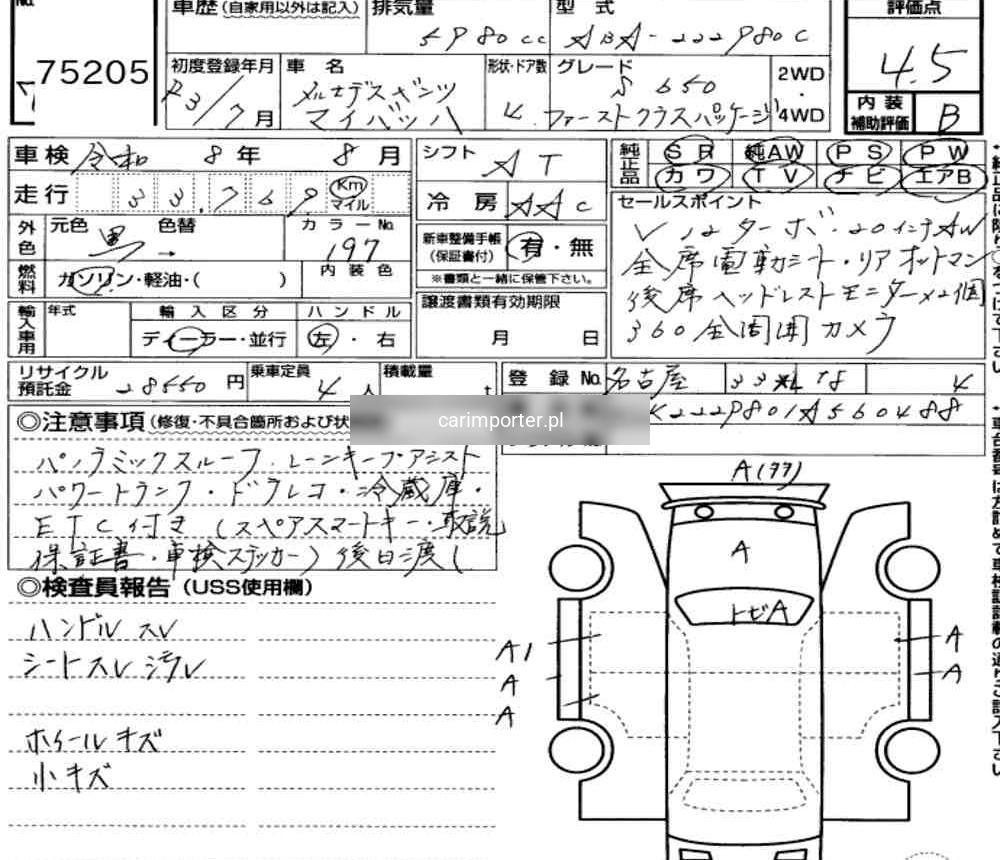 No.
75205
車歴 (自家用以外は記入)
排気量
5980 cc
型式
ABA-222980C
評価点
4.5
内装補助評価
B
初度登録年月
R3/7月
車名
メルセデスベンツ
マイバッハ
形状・ドア数
4
グレード
S 650
ファーストクラスパッケージ
2WD
・
4WD
車検 令和 8年 8月
走行 33,769 Km マイル
外色
元色 黒 → 色替
カラーNo.
197
燃料
ガソリン・軽油・( )
内装色
輸入車用
年式
輸入区分
ディーラー・並行
ハンドル
左・右
シフト
AT
冷房
AAC
新車整備手帳
(保証書付)
有・無
※書類と一緒に保管下さい。
譲渡書類有効期限
月 日
純正品
SR 純AW PS PW
カワ TV ナビ エアB
セールスポイント
V12ターボ・20インチAW
全席電動シート・リアオットマン
後席ヘッドレストモニター×2個
360全周囲カメラ
リサイクル預託金
28550円
乗車定員
4人
積載量
t
登録No.
名古屋
4
carimporter.pl
◎注意事項 (修復・不具合箇所および状
パノラミックスルーフ・レーンキープアシスト
パワートランク・ドラレコ・冷蔵庫・
ETC付き (スペアスマートキー・取説
保証書・車検ステッカー) 後日渡し
◎検査員報告 (USS使用欄)
ハンドル スレ
シートスレ汚レ
ホイールキズ
小キズ
A(ララ)
A
トビA
A1
A
A
A
A